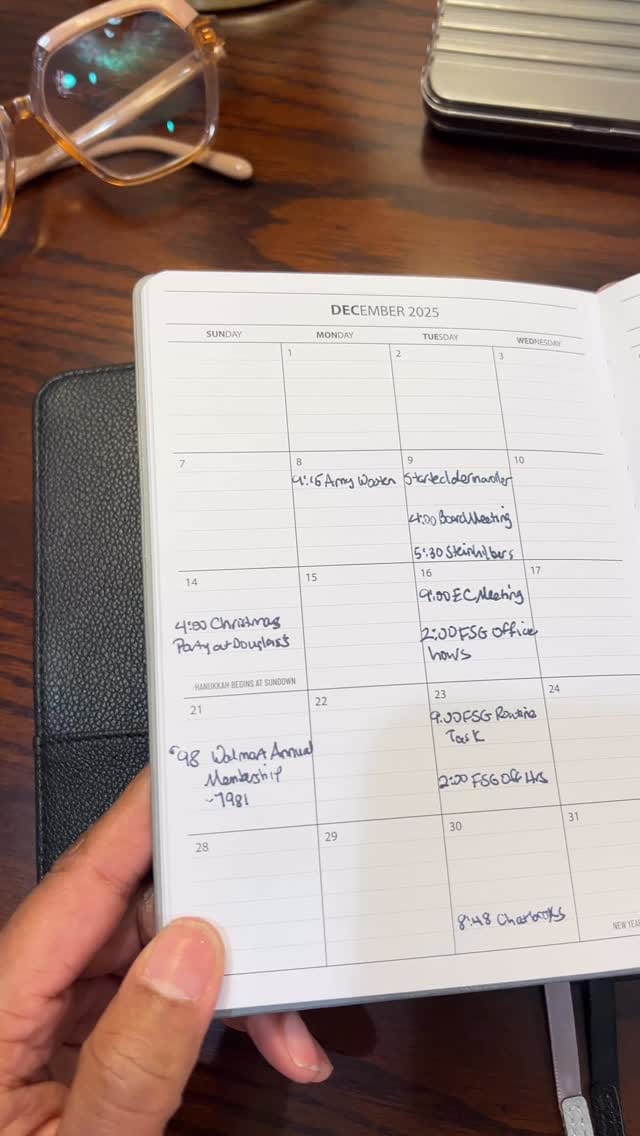 DECEMBER 2025
SUNDAY MONDAY TUESDAY WEDNESDAY
1 2 3
7 8 9 10
4:15 Amy
4:00 Board Meeting
5:30 Steinhilbers
14 15 16 17
4:00 Christmas
Party at Douglass's
HANUKKAH BEGINS AT SUNDOWN
9:00 EC Meeting
2:00 FSG Office
hours
21 22 23 24
98 Walmart Annual
Membership
-7981
9:00 FSG Routine
Task
2:00 FSG Off Hrs
28 29 30 31
8:48
NEW YEAR